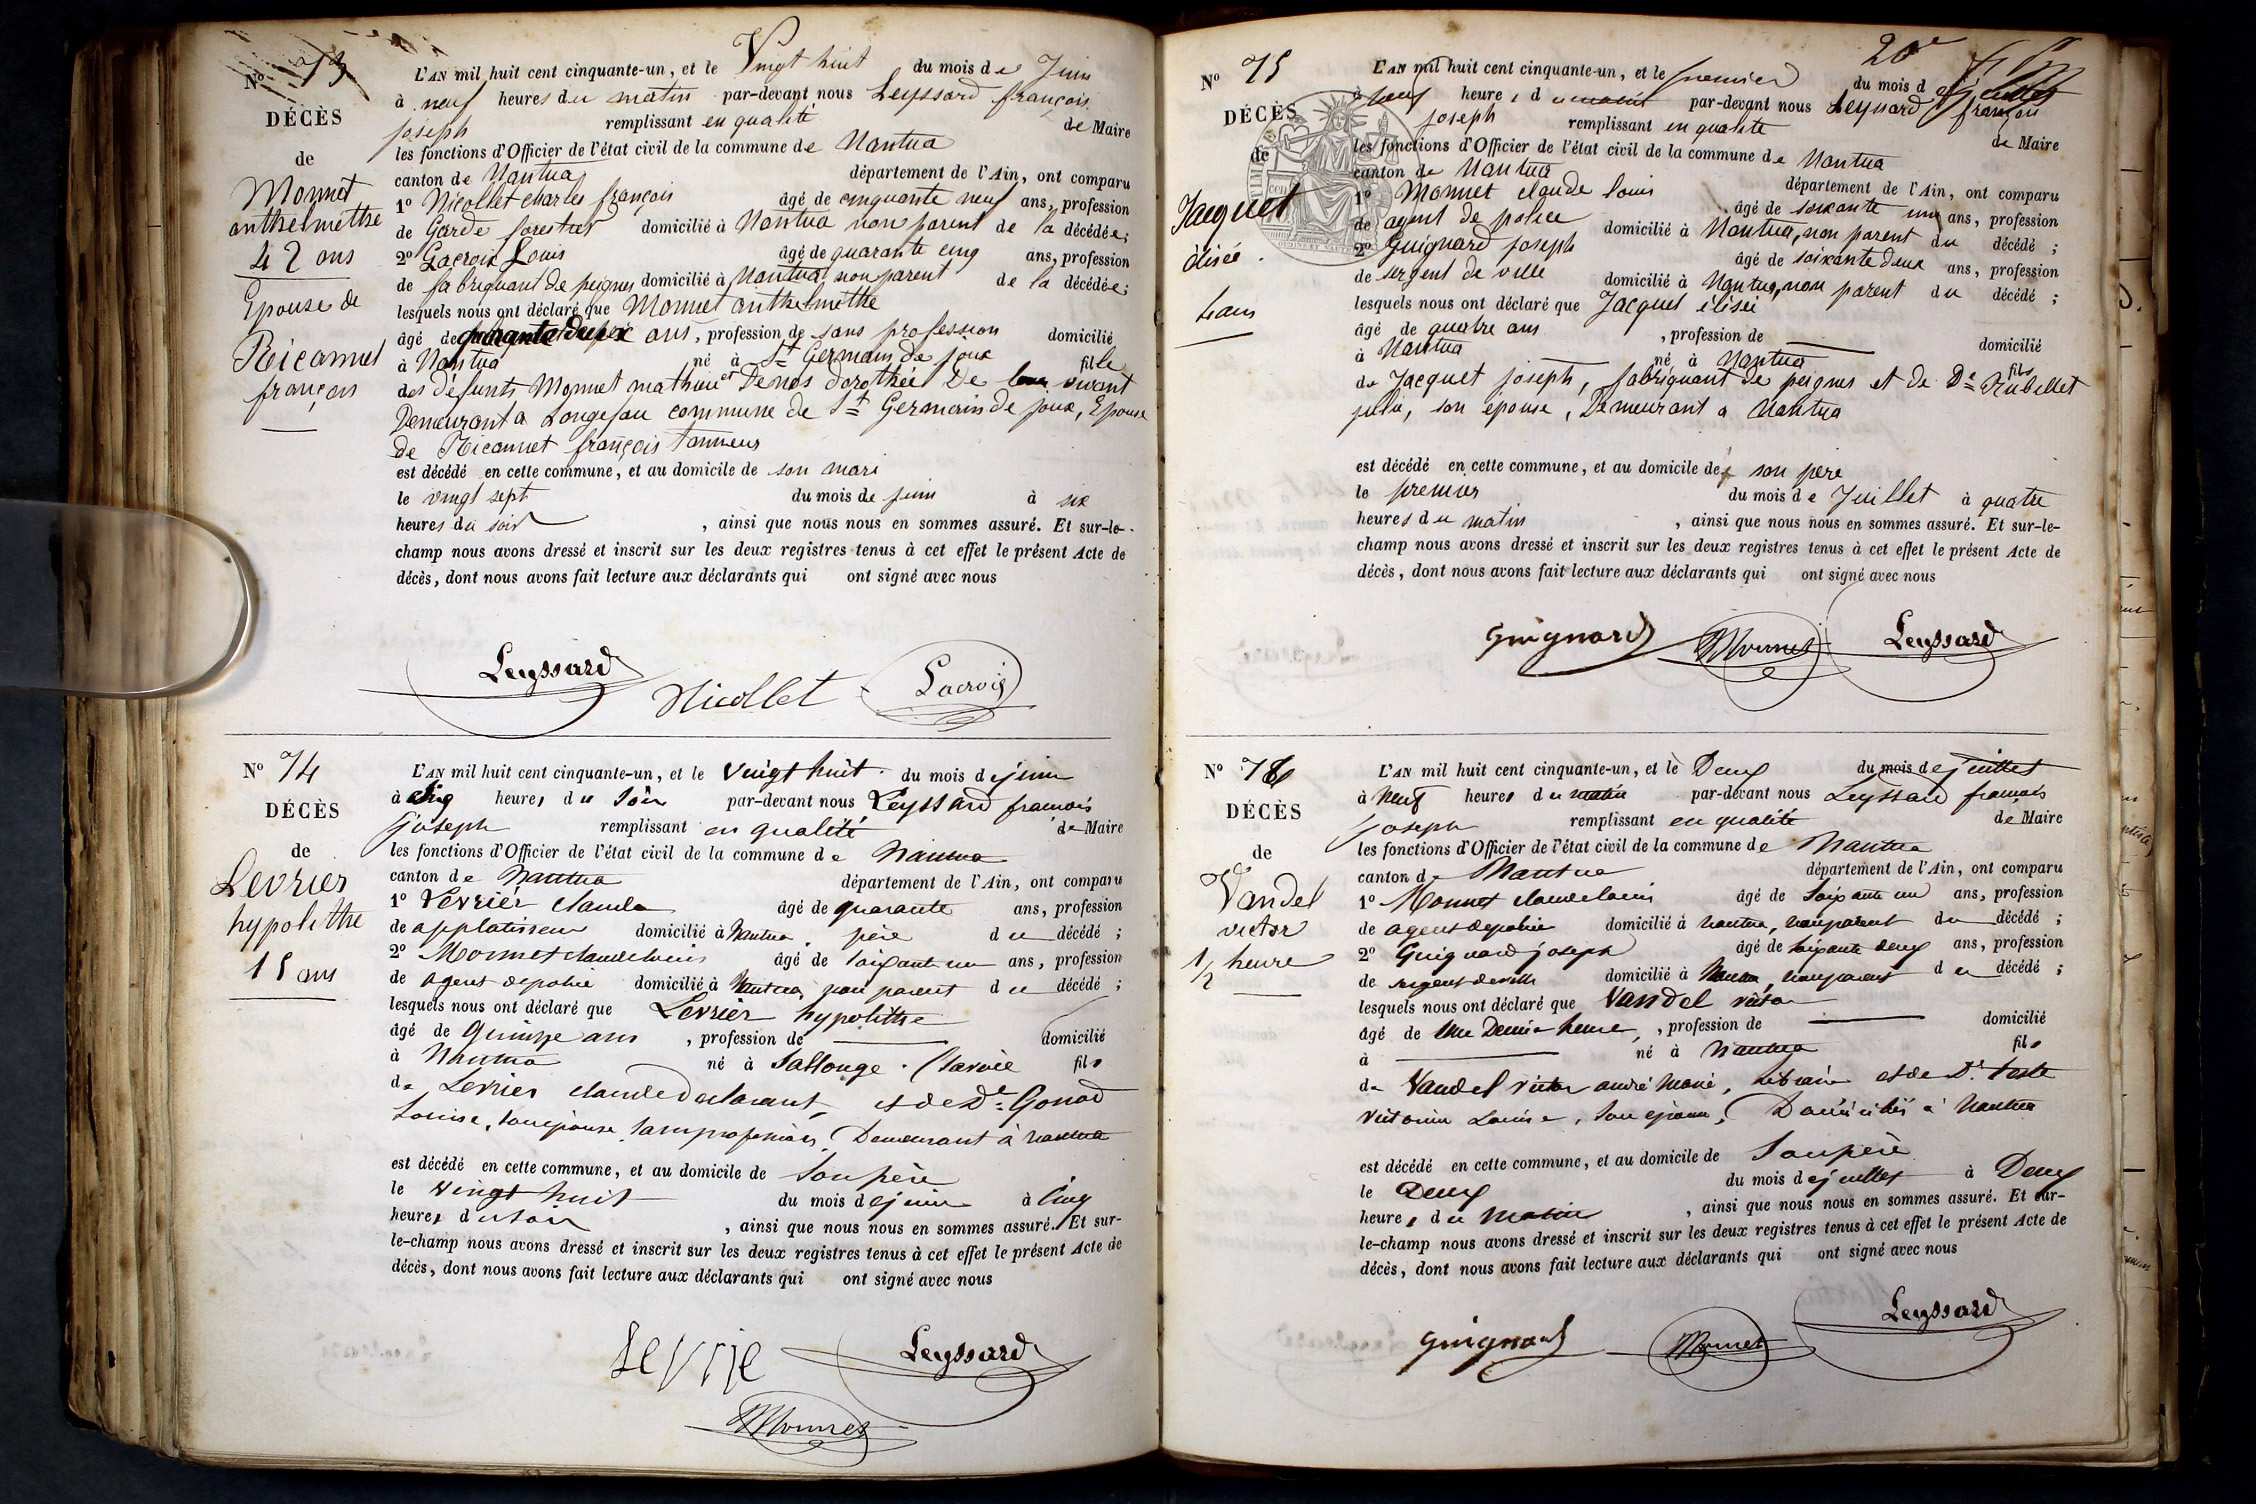 N° 73
DÉCÈS
de
Monnet
anthelmette
42 ans
Epouse de
Ricannet
françois
L'AN mil huit cent cinquante-un, et le Vingt huit du mois de Juin
à neuf heures du matin par-devant nous Leyssard françois
joseph remplissant en qualité de Maire
les fonctions d'Officier de l'état civil de la commune de Nantua
canton de Nantua département de l'Ain, ont comparu
1° Nicollet charles françois âgé de cinquante neuf ans, profession
de Garde forestier domicilié à Nantua non parent de la décédée;
2° Lacroix Louis âgé de quarante cinq ans, profession
de fabriquant de peignes domicilié à Nantua non parent de la décédée;
lesquels nous ont déclaré que Monnet anthelmette
âgé de quarante deux ans, profession de sans profession domicilié
à Nantua né à St Germain de joux fille
des défunts Monnet mathieu et Denos dorothée De leur vivant
Demeurant à Longefau commune de St Germain de joux, Epouse
de Ricannet françois tanneur
est décédé en cette commune, et au domicile de son mari
le vingt sept du mois de juin à six
heures du soir, ainsi que nous nous en sommes assuré. Et sur-le-
champ nous avons dressé et inscrit sur les deux registres tenus à cet effet le présent Acte de
décès, dont nous avons fait lecture aux déclarants qui ont signé avec nous
Leyssard Nicollet Lacroix
N° 74
DÉCÈS
de
Levrier
hypolithe
15 ans
L'AN mil huit cent cinquante-un, et le vingt huit du mois de juin
à cinq heures du soir par-devant nous Leyssard francois
joseph remplissant en qualité de Maire
les fonctions d'Officier de l'état civil de la commune de Nantua
canton de Nantua département de l'Ain, ont comparu
1° Levrier claude âgé de quarante ans, profession
de applatisseur domicilié à Nantua. père du décédé;
2° Monnet claude louis âgé de soixante un ans, profession
de agent de police domicilié à Nantua, non parent du décédé;
lesquels nous ont déclaré que Levrier hypolithe
âgé de quinze ans, profession de — domicilié
à Nantua né à Sallonge. (Savoie fils
de Levrier claude déclarant, et de De Gonod
Louise, son épouse, sans profession, Demeurant à nantua
est décédé en cette commune, et au domicile de Son père
le vingt huit du mois de juin à cinq
heures du soir, ainsi que nous nous en sommes assuré. Et sur-
le-champ nous avons dressé et inscrit sur les deux registres tenus à cet effet le présent Acte de
décès, dont nous avons fait lecture aux déclarants qui ont signé avec nous
Levrie Leyssard
Monnet
20e
N° 75
DÉCÈS
de
Jacquet
élisée.
4 ans
L'AN mil huit cent cinquante-un, et le premier du mois de juillet
à neuf heures du matin par-devant nous Leyssard françois
joseph remplissant en qualité de Maire
les fonctions d'Officier de l'état civil de la commune de Nantua
canton de Nantua département de l'Ain, ont comparu
1° Monnet claude louis âgé de soixante un ans, profession
de agent de police domicilié à Nantua, non parent du décédé;
2° Guignard joseph âgé de soixante deux ans, profession
de sergent de ville domicilié à Nantua, non parent du décédé;
lesquels nous ont déclaré que Jacquet élisée
âgé de quatre ans, profession de — domicilié
à Nantua né à Nantua fils
de Jacquet joseph, fabriquant de peignes et de De Rubellet
julie, son épouse, Demeurant à Nantua
est décédé en cette commune, et au domicile de son père
le premier du mois de Juillet à quatre
heures du matin, ainsi que nous nous en sommes assuré. Et sur-le-
champ nous avons dressé et inscrit sur les deux registres tenus à cet effet le présent Acte de
décès, dont nous avons fait lecture aux déclarants qui ont signé avec nous
Guignard Monnet Leyssard
N° 76
DÉCÈS
de
Vandel
victor
1/2 heure
L'AN mil huit cent cinquante-un, et le Deux du mois de juillet
à neuf heures du matin par-devant nous Leyssard francois
joseph remplissant en qualité de Maire
les fonctions d'Officier de l'état civil de la commune de Nantua
canton de Nantua département de l'Ain, ont comparu
1° Monnet claude louis âgé de Soixante un ans, profession
de agent de police domicilié à nantua, non parent du décédé;
2° Guignard joseph âgé de soixante deux ans, profession
de sergent de ville domicilié à Nantua, non parent du décédé;
lesquels nous ont déclaré que Vandel victor
âgé de Une Demie heure, profession de — domicilié
à — né à Nantua fils
de Vandel victor andré marie, libraire et de De teste
victorine Louise, Son épouse, Domiciliés à Nantua
est décédé en cette commune, et au domicile de Son père
le Deux du mois de juillet à Deux
heures du matin, ainsi que nous nous en sommes assuré. Et sur-
le-champ nous avons dressé et inscrit sur les deux registres tenus à cet effet le présent Acte de
décès, dont nous avons fait lecture aux déclarants qui ont signé avec nous
Guignard Monnet Leyssard